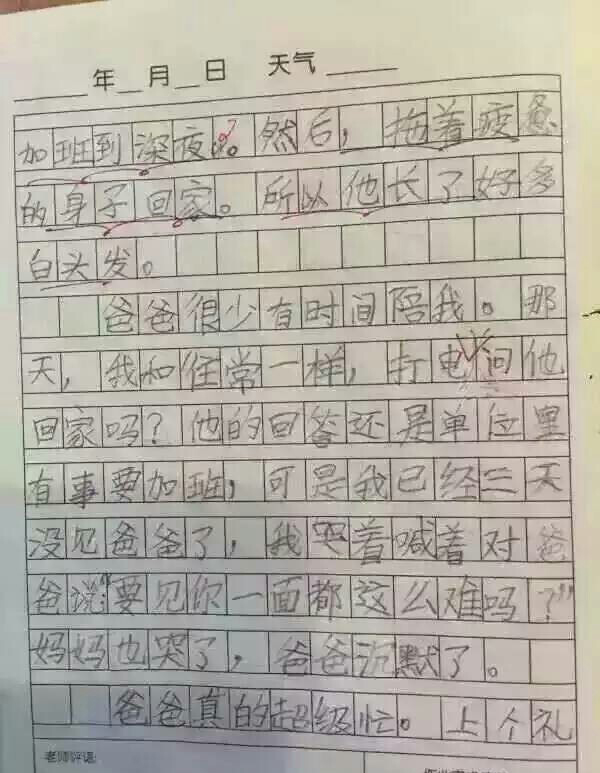 年 月 日 天气
加班到深夜。然后，拖着疲惫
的身子回家。所以他长了好多
白头发。
爸爸很少有时间陪我。那
天，我和往常一样，打电问他
回家吗？他的回答还是单位里
有事要加班，可是我已经三天
没见爸爸了，我哭着喊着对爸
爸说：“要见你一面都这么难吗？”
妈妈也哭了，爸爸沉默了。
爸爸真的超级忙。上个礼
老师评语: